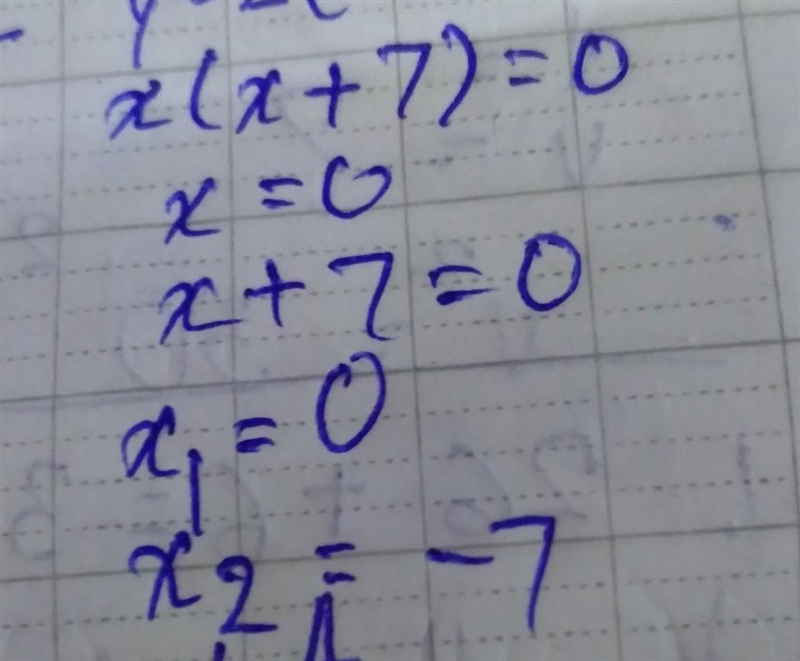 x(x+7)=0
x=0
x+7=0
x₁=0
x₂=-7